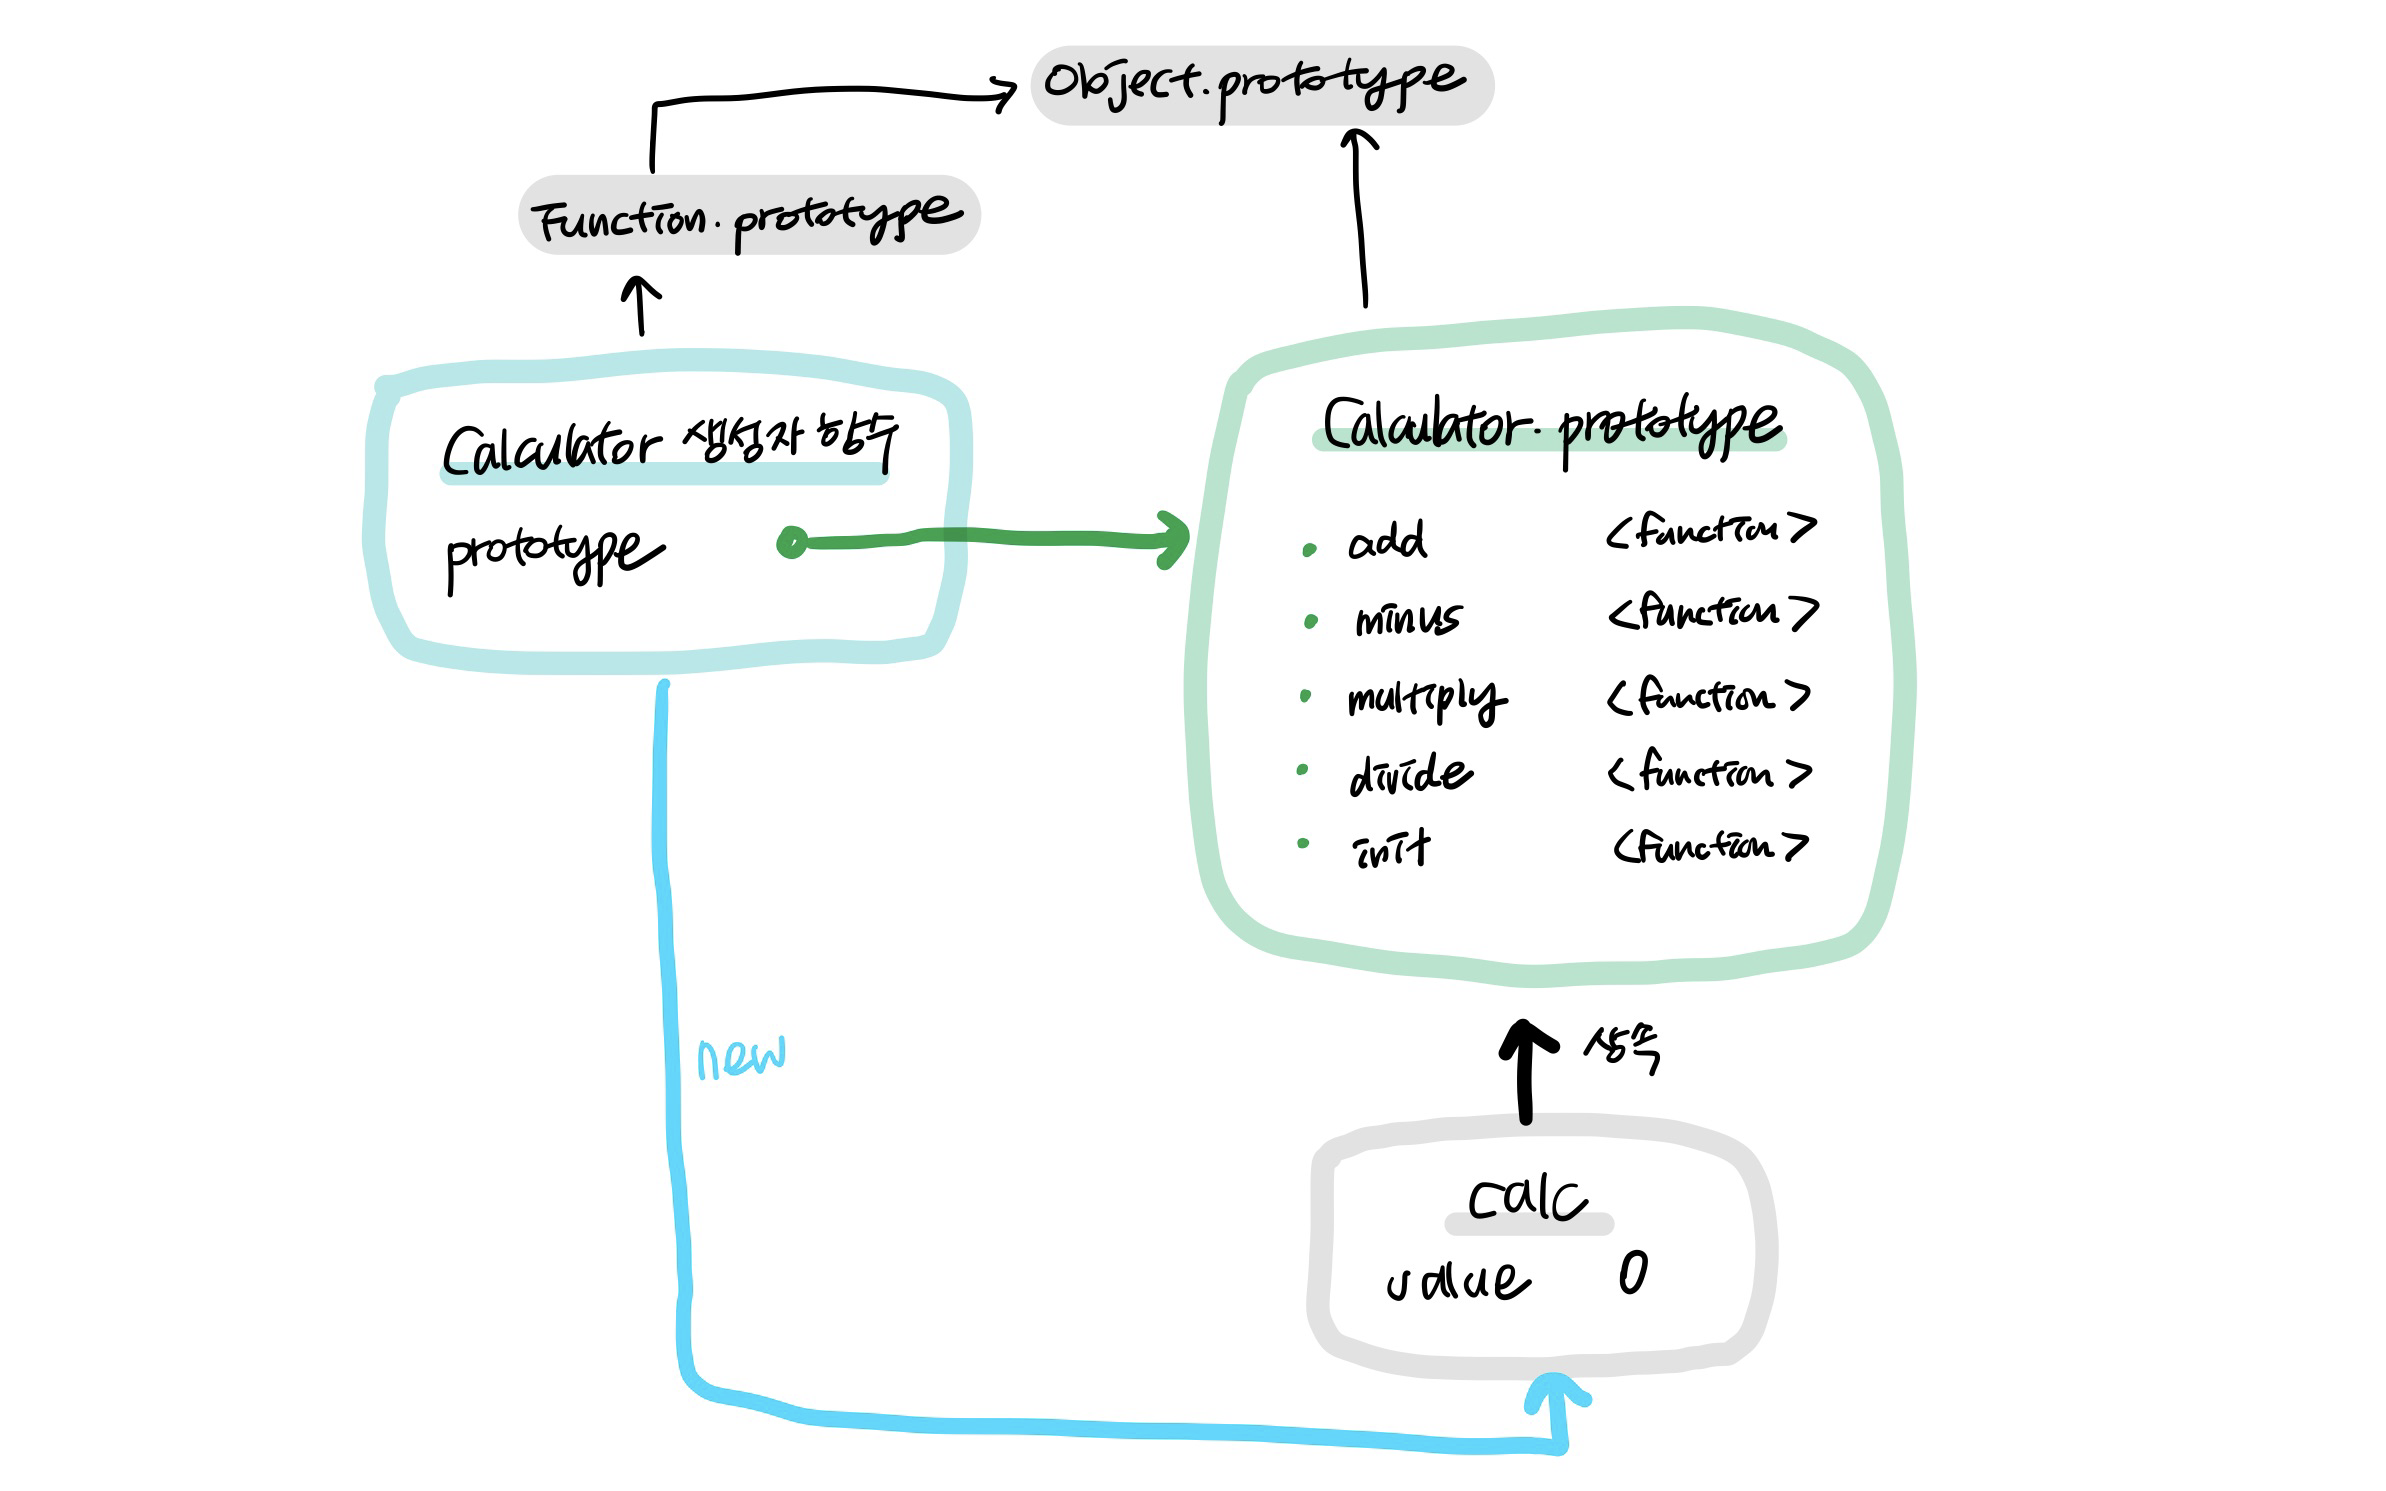 Object.prototype
Function.prototype
Calculator 생성자 함수
prototype
Calculator.prototype
add <function>
minus <function>
multiply <function>
divide <function>
init <function>
new
상속
calc
value 0